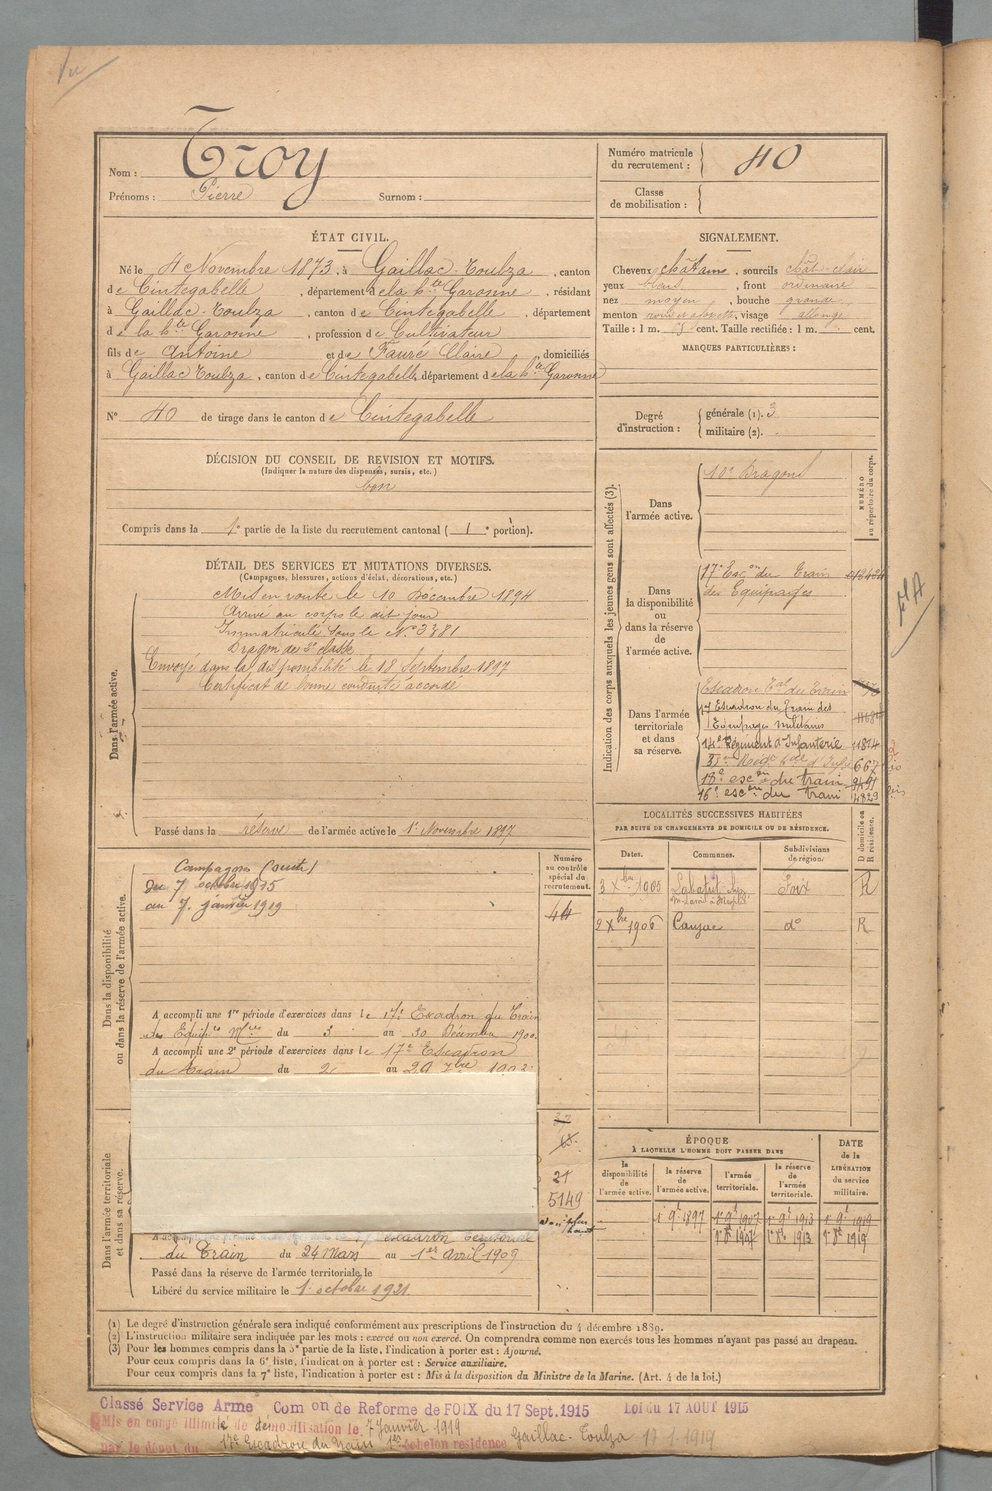 Vu
Nom : Troy
Prénoms : Pierre Surnom :
Numéro matricule du recrutement : 40
Classe de mobilisation :
ÉTAT CIVIL.
Né le 4 Novembre 1873, à Gaillac-Toulza, canton
de Cintegabelle, département de la Hte Garonne, résidant
à Gaillac-Toulza, canton de Cintegabelle, département
de la Hte Garonne, profession de Cultivateur
fils de Antoine et de Fauré Claire, domiciliés
à Gaillac Toulza, canton de Cintegabelle, département de la Hte Garonne
N° 40 de tirage dans le canton de Cintegabelle
SIGNALEMENT.
Cheveux châtains, sourcils chât-clair
yeux bleus, front ordinaire
nez moyen, bouche grande
menton rond, visage allongé
Taille : 1 m. cent. Taille rectifiée : 1 m. cent.
MARQUES PARTICULIÈRES :
Degré d'instruction : générale (1). 3
militaire (2).
DÉCISION DU CONSEIL DE REVISION ET MOTIFS.
(Indiquer la nature des dispenses, sursis, etc.)
bon
Compris dans la 1e partie de la liste du recrutement cantonal ( 1e portion).
DÉTAIL DES SERVICES ET MUTATIONS DIVERSES.
(Campagnes, blessures, actions d'éclat, décorations, etc.)
Dans l'armée active.
Mis en route le 10 Décembre 1894
Arrivé au corps le dit jour
Immatriculé sous le N° 3381
Dragon de 2e classe
Envoyé dans la disponibilité le 18 Septembre 1897
Certificat de bonne conduite accordé
Passé dans la réserve de l'armée active le 1er Novembre 1897
Indication des corps auxquels les jeunes gens sont affectés (3).
NUMÉRO au répertoire du corps.
Dans l'armée active.
10e Dragons
Dans la disponibilité ou dans la réserve de l'armée active.
17e Esc.on du Train
des Equipages
Dans l'armée territoriale et dans sa réserve.
Escadron T.al du Train
17 Escadron du Train des
Equipages Militaires
14e Régiment d'Infanterie 11874
667
18e esc.on du train
16e esc.on du train 4829
LOCALITÉS SUCCESSIVES HABITÉES
PAR SUITE DE CHANGEMENTS DE DOMICILE OU DE RÉSIDENCE.
Dates. Communes. Subdivisions de région. D domicile ou R résidence.
3 Xbre 1905 Labatut chez Foix R
2 Xbre 1906 Canzac do R
Dans la disponibilité ou dans la réserve de l'armée active.
Numéro au contrôle spécial du recrutement.
44
Campagne
Du 7 octobre 1915
au 7 janvier 1919
A accompli une 1re période d'exercices dans le 17e Escadron du Train
des Equip.es Mres du 3 au 30 Décembre 1900.
A accompli une 2e période d'exercices dans le 17e Escadron
du Train du 2 au 29 7bre 1903
Dans l'armée territoriale et dans sa réserve.
21
5149
escadron territorial
du Train du 24 Mars au 1er avril 1909
Passé dans la réserve de l'armée territoriale, le
Libéré du service militaire le 1 octobre 1921
ÉPOQUE
À LAQUELLE L'HOMME DOIT PASSER DANS
la disponibilité de l'armée active. la réserve de l'armée active. l'armée territoriale. la réserve de l'armée territoriale.
DATE de la LIBÉRATION du service militaire.
1er 9e 1897 1er 9e 1907 1er 9e 1913 1er 9e 1919
1er 8e 1907 1er 8e 1913 1er 8e 1919
(1) Le degré d'instruction générale sera indiqué conformément aux prescriptions de l'instruction du 4 décembre 1889.
(2) L'instruction militaire sera indiquée par les mots : exercé ou non exercé. On comprendra comme non exercés tous les hommes n'ayant pas passé au drapeau.
(3) Pour les hommes compris dans la 5e partie de la liste, l'indication à porter est : Ajourné.
Pour ceux compris dans la 6e liste, l'indication à porter est : Service auxiliaire.
Pour ceux compris dans la 7e liste, l'indication à porter est : Mis à la disposition du Ministre de la Marine. (Art. 4 de la loi.)
Classé Service Armé Com on de Reforme de FOIX du 17 Sept.1915 Loi du 17 AOUT 1915
Mis en congé illimité de démobilisation le 7 Janvier 1919
par le dépôt du 17e Escadron du Train 1er échelon residence Gaillac-Toulza 17.1.1919